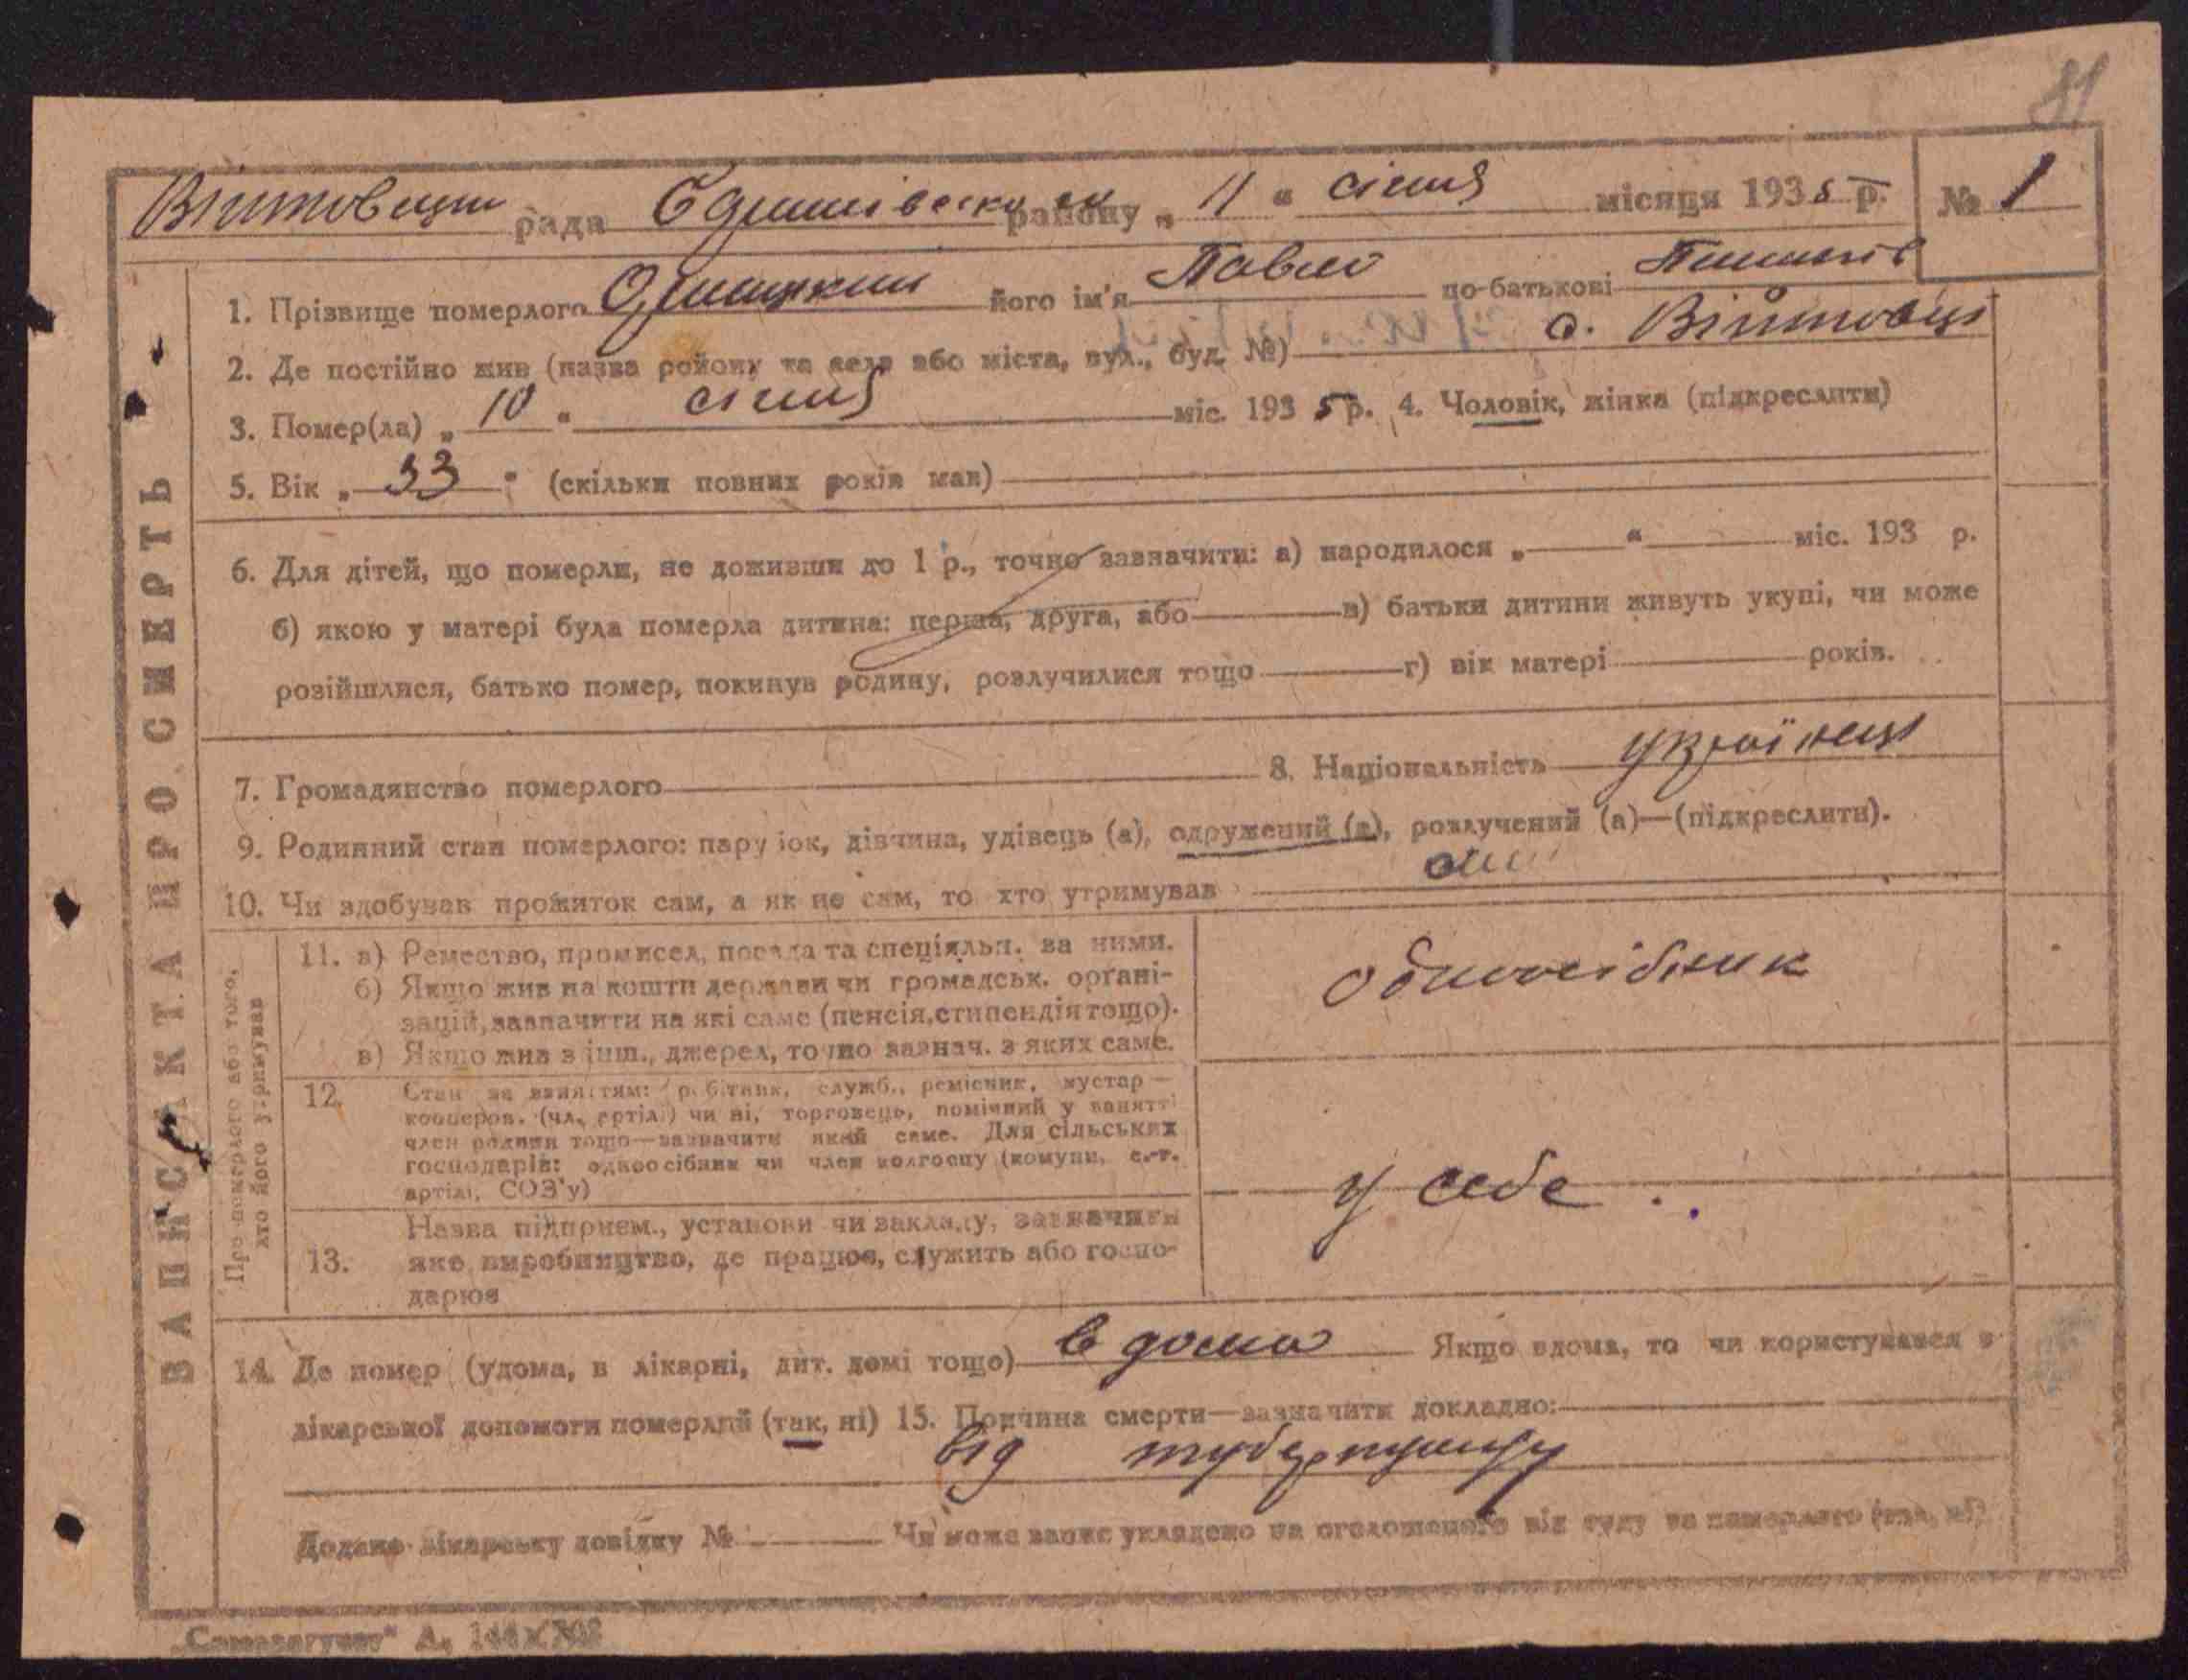 81
рада району „ 11 “ січня місяця 1935 р. № 1
1. Прізвище померлого його ім'я Павло по-батькові
2. Де постійно жив (назва району та села або міста, вул., буд. №) с. Війтовці
3. Помер(ла) „ 10 “ січня міс. 1935 р. 4. Чоловік, жінка (підкреслити)
5. Вік „ 33 “ (скільки повних років мав)
6. Для дітей, що померли, не доживши до 1 р., точно зазначити: а) народилося „ “ міс. 193 р.
б) якою у матері була померла дитина: перша, друга, або в) батьки дитини живуть укупі, чи може
розійшлися, батько помер, покинув родину, розлучилися тощо г) вік матері років.
7. Громадянство померлого 8. Національність українець
9. Родинний стан померлого: парубок, дівчина, удівець (а), одружений (а), розлучений (а)—(підкреслити).
10. Чи здобував прожиток сам, а як не сам, то хто утримував сам
ЗАПИС АКТА ПРО СМЕРТЬ
Про померлого або того,
хто його утримував
11. а) Ремество, промисел, посада та спеціяльн. за ними.
б) Якщо жив на кошти держави чи громадськ. органі-
зацій, зазначити на які саме (пенсія, стипендія тощо).
в) Якщо жив з інш., джерел, точно зазнач. з яких саме.
одноосібник
12. Стан за заняттям: робітник, служб., ремісник, кустар—
кооперов. (чл. артілі) чи ні, торговець, помічний у занятті
член родини тощо—зазначити який саме. Для сільських
господарів: одноосібник чи член колгоспу (комуни, с.-г.
артілі, СОЗ'у)
у себе.
Назва підприєм., установи чи закладу, зазначивши
13. яке виробництво, де працює, служить або госпо-
дарює
14. Де помер (удома, в лікарні, дит. домі тощо) в дома Якщо вдома, то чи користувався з
лікарської допомоги померлий (так, ні) 15. Причина смерти—зазначити докладно:
від туберкульозу
Додано лікарську довідку № Чи може запис укладено на оголошеного від суду за померлого (так, ні)